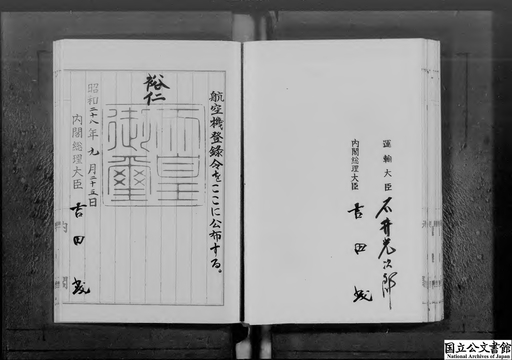 運輸大臣 石井光次郎
内閣総理大臣 吉田茂
航空機登録令をここに公布する。
裕仁
天皇御璽
昭和二十八年九月二十五日
内閣総理大臣 吉田茂
国立公文書館
National Archives of Japan